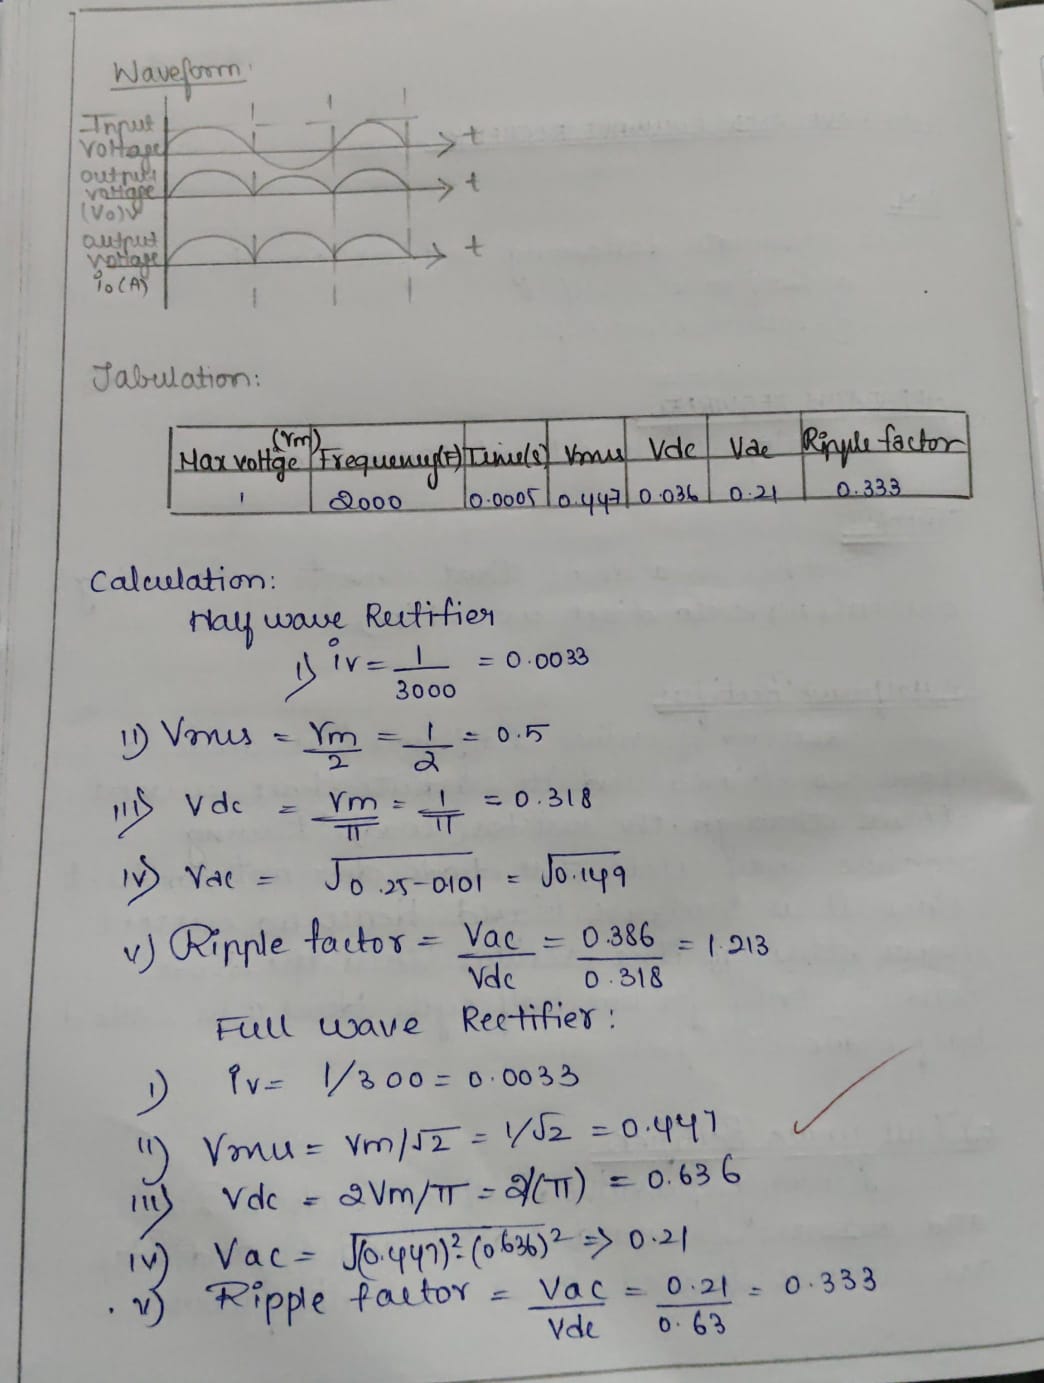 Waveform:
Input
Voltage
t
output
voltage
(Vo)V
t
output
voltage
io(A)
t
Tabulation:
Max voltge (Vm) Frequency(F) Time(s) Vrms Vdc Vac Ripple factor
1 2000 0.0005 0.447 0.036 0.21 0.333
Calculation:
Half wave Rectifier
i) iv = 1/3000 = 0.0033
ii) Vrms = Vm/2 = 1/2 = 0.5
iii) Vdc = Vm/π = 1/π = 0.318
iv) Vac = √0.25-0101 = √0.149
v) Ripple factor = Vac/Vdc = 0.386/0.318 = 1.213
Full wave Rectifier:
i) iv= 1/300 = 0.0033
ii) Vrms = Vm/√2 = 1/√2 = 0.447
iii) Vdc = 2Vm/π = 2/(π) = 0.636
iv) Vac = √(0.447)²-(0.636)² => 0.21
v) Ripple factor = Vac/Vdc = 0.21/0.63 = 0.333